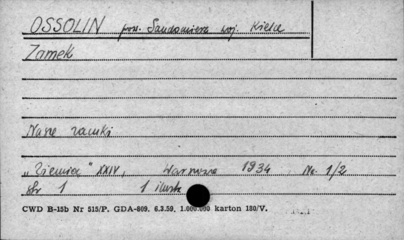 OSSOLIN pow. Sandomierz woj. Kielce
Zamek
Nasze zamki
„Ziemia" XXIV, Warszawa 1934 Nr. 1/2
str 1 1 ilustr
CWD B-15b Nr 515/P. GDA-809. 6.3.59. 1.000.000 karton 180/V.